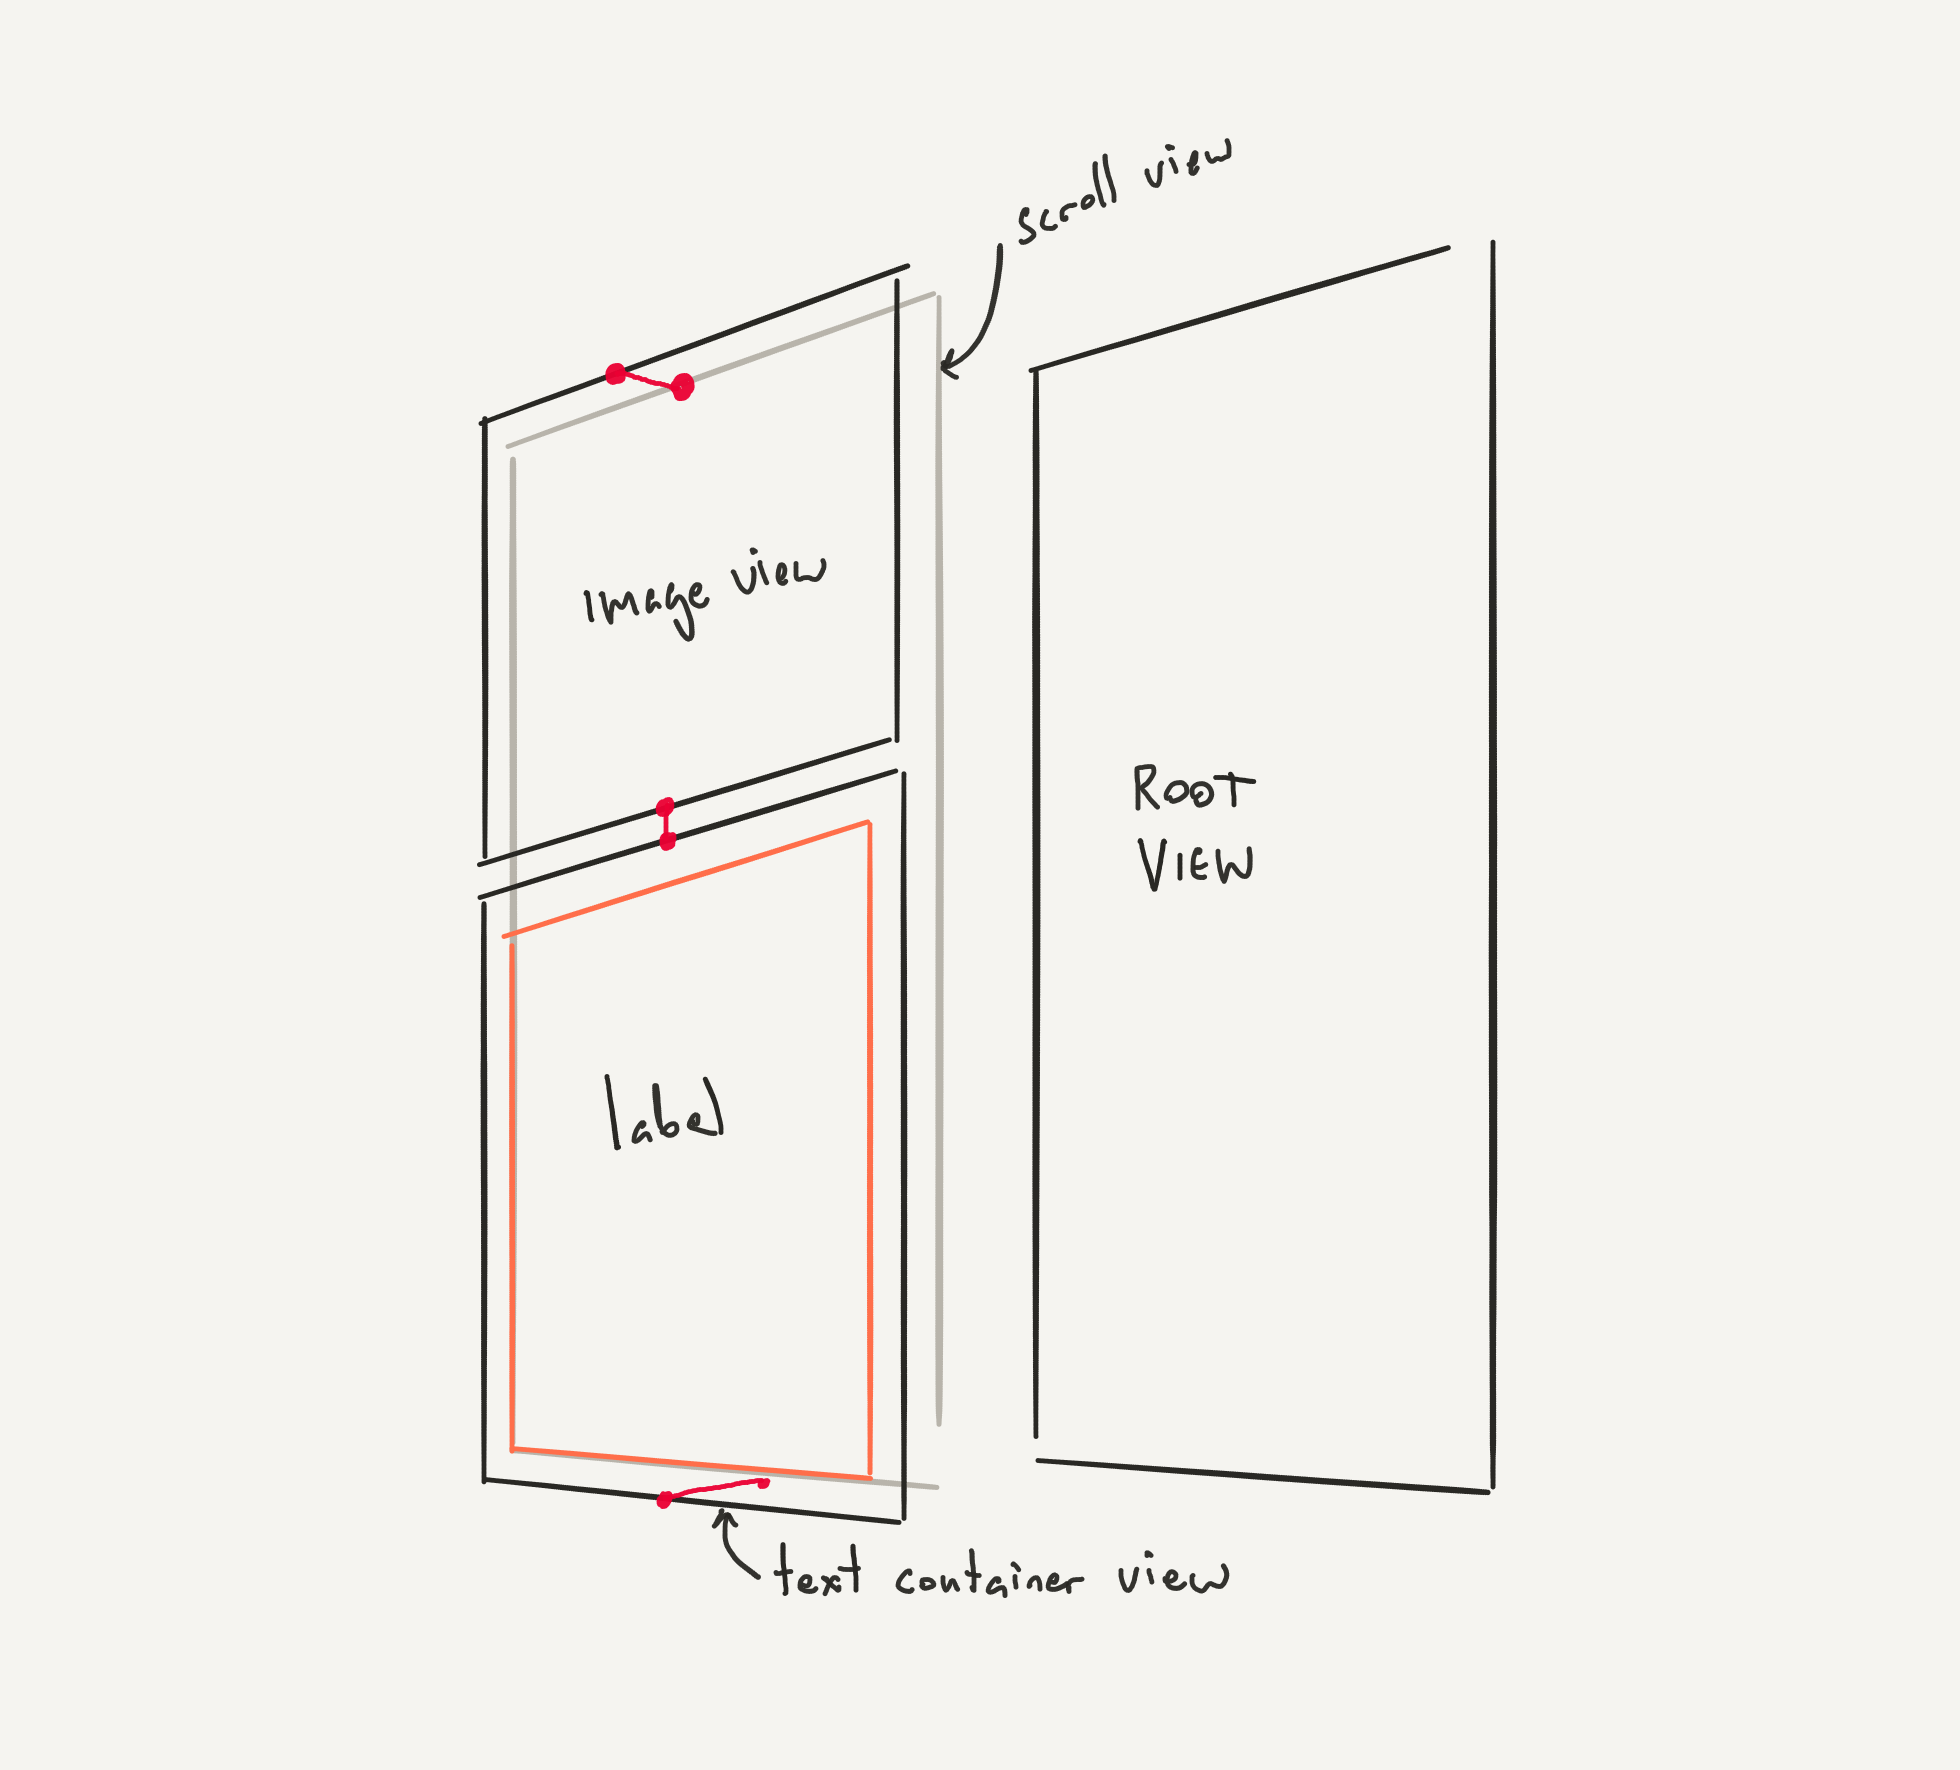 scroll view
Image view
ROOT
VIEW
label
text container view